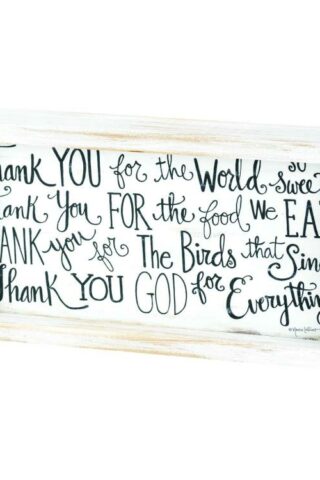 hank YOU for the World so Swee
hank You FOR the food We EA
HANK you for The Birds that Sin
Thank YOU GOD for Everythin